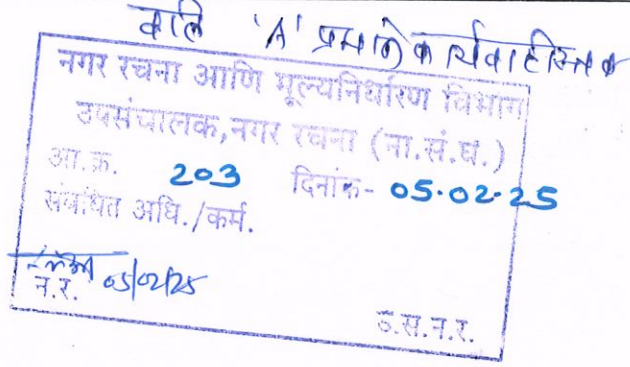 'A' प्रमाणे
नगर रचना आणि मूल्यनिर्धारण विभाग
उपसंचालक,नगर रचना (ना.सं.घ.)
आ.क्र. 203 दिनांक- 05.02.25
संबंधित अधि./कर्म.
न.र. 05/02/25
उ.स.न.र.